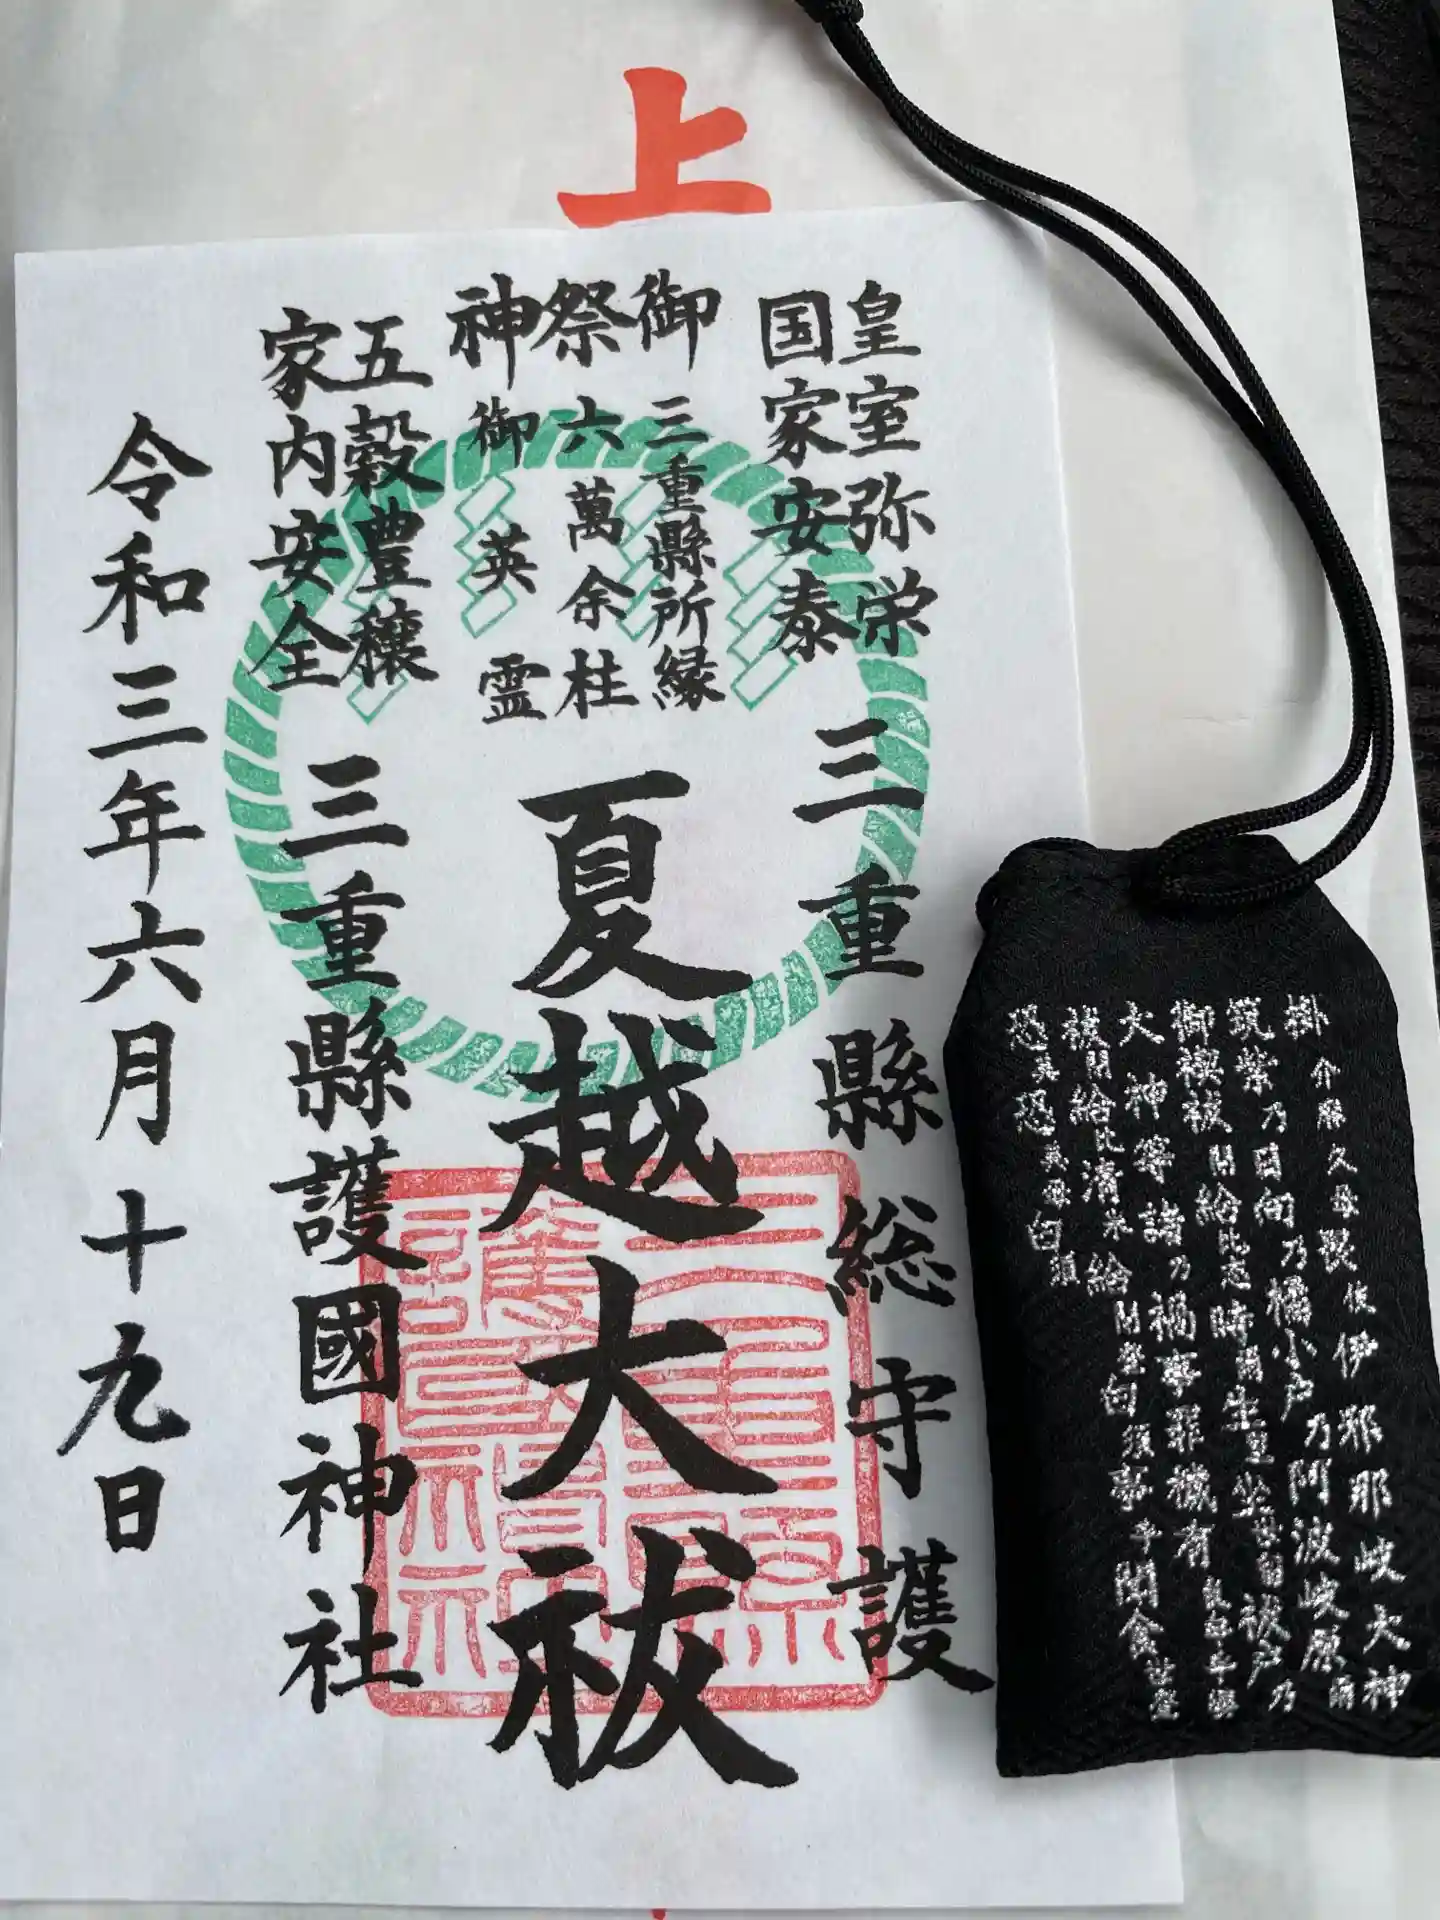 上
皇室弥栄
国家安泰
御祭神
三重縣所縁
六萬余柱
御英霊
五穀豊穣
家内安全
三重縣総守護
夏越大祓
三重縣護國神社
令和三年六月十九日
三重縣護國神社
掛介麻久母畏伎伊邪那岐大神
筑紫乃日向乃橘小戸乃阿波岐原爾
御禊祓閉給比志時爾生里坐世留祓戸乃
大神等諸乃禍事罪穢有良牟乎婆
祓閉給比清米給閉登白須事乎聞食世登
恐美恐美母白須